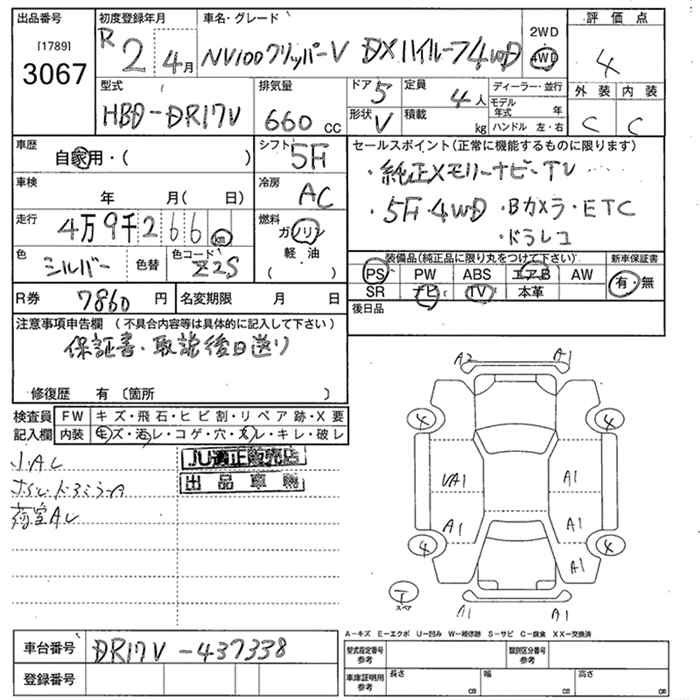 出品番号
[1789]
3067
初度登録年月
R 2 年 4月
車名・グレード
NV100クリッパーV DXハイルーフ4WD
2WD
4WD
評価点
4
外装 内装
C C
型式
HBD-DR17V
排気量
660 cc
ドア 5
形状 V
定員
4人
積載
kg
ディーラー・並行
モデル年式 年
ハンドル 左・右
車歴
自家用・( )
シフト
5F
車検
年 月( 日)
冷房
AC
走行
4万9千266 km
燃料
ガソリン
軽油
( )
色
シルバー
色替
色コード
Z2S
R券
7860円
名変期限 月 日
セールスポイント(正常に機能するものに限ります)
・純正メモリーナビ・TV
・5F・4WD・Bカメラ・ETC
・ドラレコ
装備品(純正品に限り丸をつけて下さい)
PS PW ABS エアB AW
SR ナビ TV 本革
新車保証書
有・無
後日品
注意事項申告欄 (不具合内容等は具体的に記入して下さい)
保証書・取説後日送り
修復歴 有 〔箇所 〕
検査員記入欄
FW キズ・飛石・ヒビ割・リペア跡・X要
内装 キズ・汚レ・コゲ・穴・スレ・キレ・破レ
JU適正販売店
出品車輛
荷室AL
A2 A1
4 4
UA1 A1
A1 A1
4 4
A1
T
スペア
A1 A1
A-キズ E-エクボ U-凹み W-補修跡 S-サビ C-腐食 XX-交換済
車台番号
DR17V-437338
登録番号
型式指定番号 参考
類別区分番号 参考
車庫証明用 参考
長さ cm
幅 cm
高さ cm